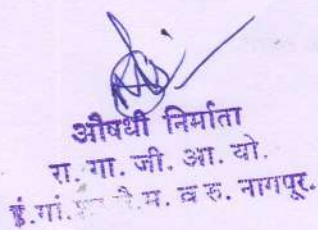 औषधी निर्माता
रा. गा. जी. आ. यो.
इं.गां. वै.म. व रु. नागपूर.